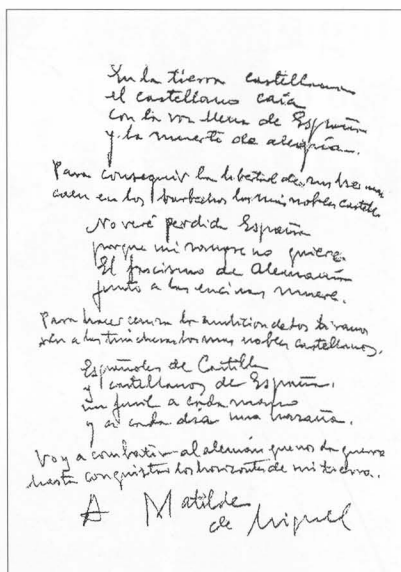 En la tierra castellana
el castellano caía
con la voz llena de España
y la muerte de alegría.
Para conseguir la libertad de sus
caen en los barbechos los más nobles
No veré perdida España
porque mi sangre no quiere.
El fascismo de Alemania
junto a las encinas muere.
Para hacer ceniza la ambición de los tiranos
van a las trincheras los mas nobles castellanos.
Españoles de Castilla
y castellanos de España,
un fusil a cada mano
y a cada día una hazaña.
Voy a combatir al alemán que nos da guerra
hasta conquistar los horizontes de mi tierra.
A Matilde
de Miguel